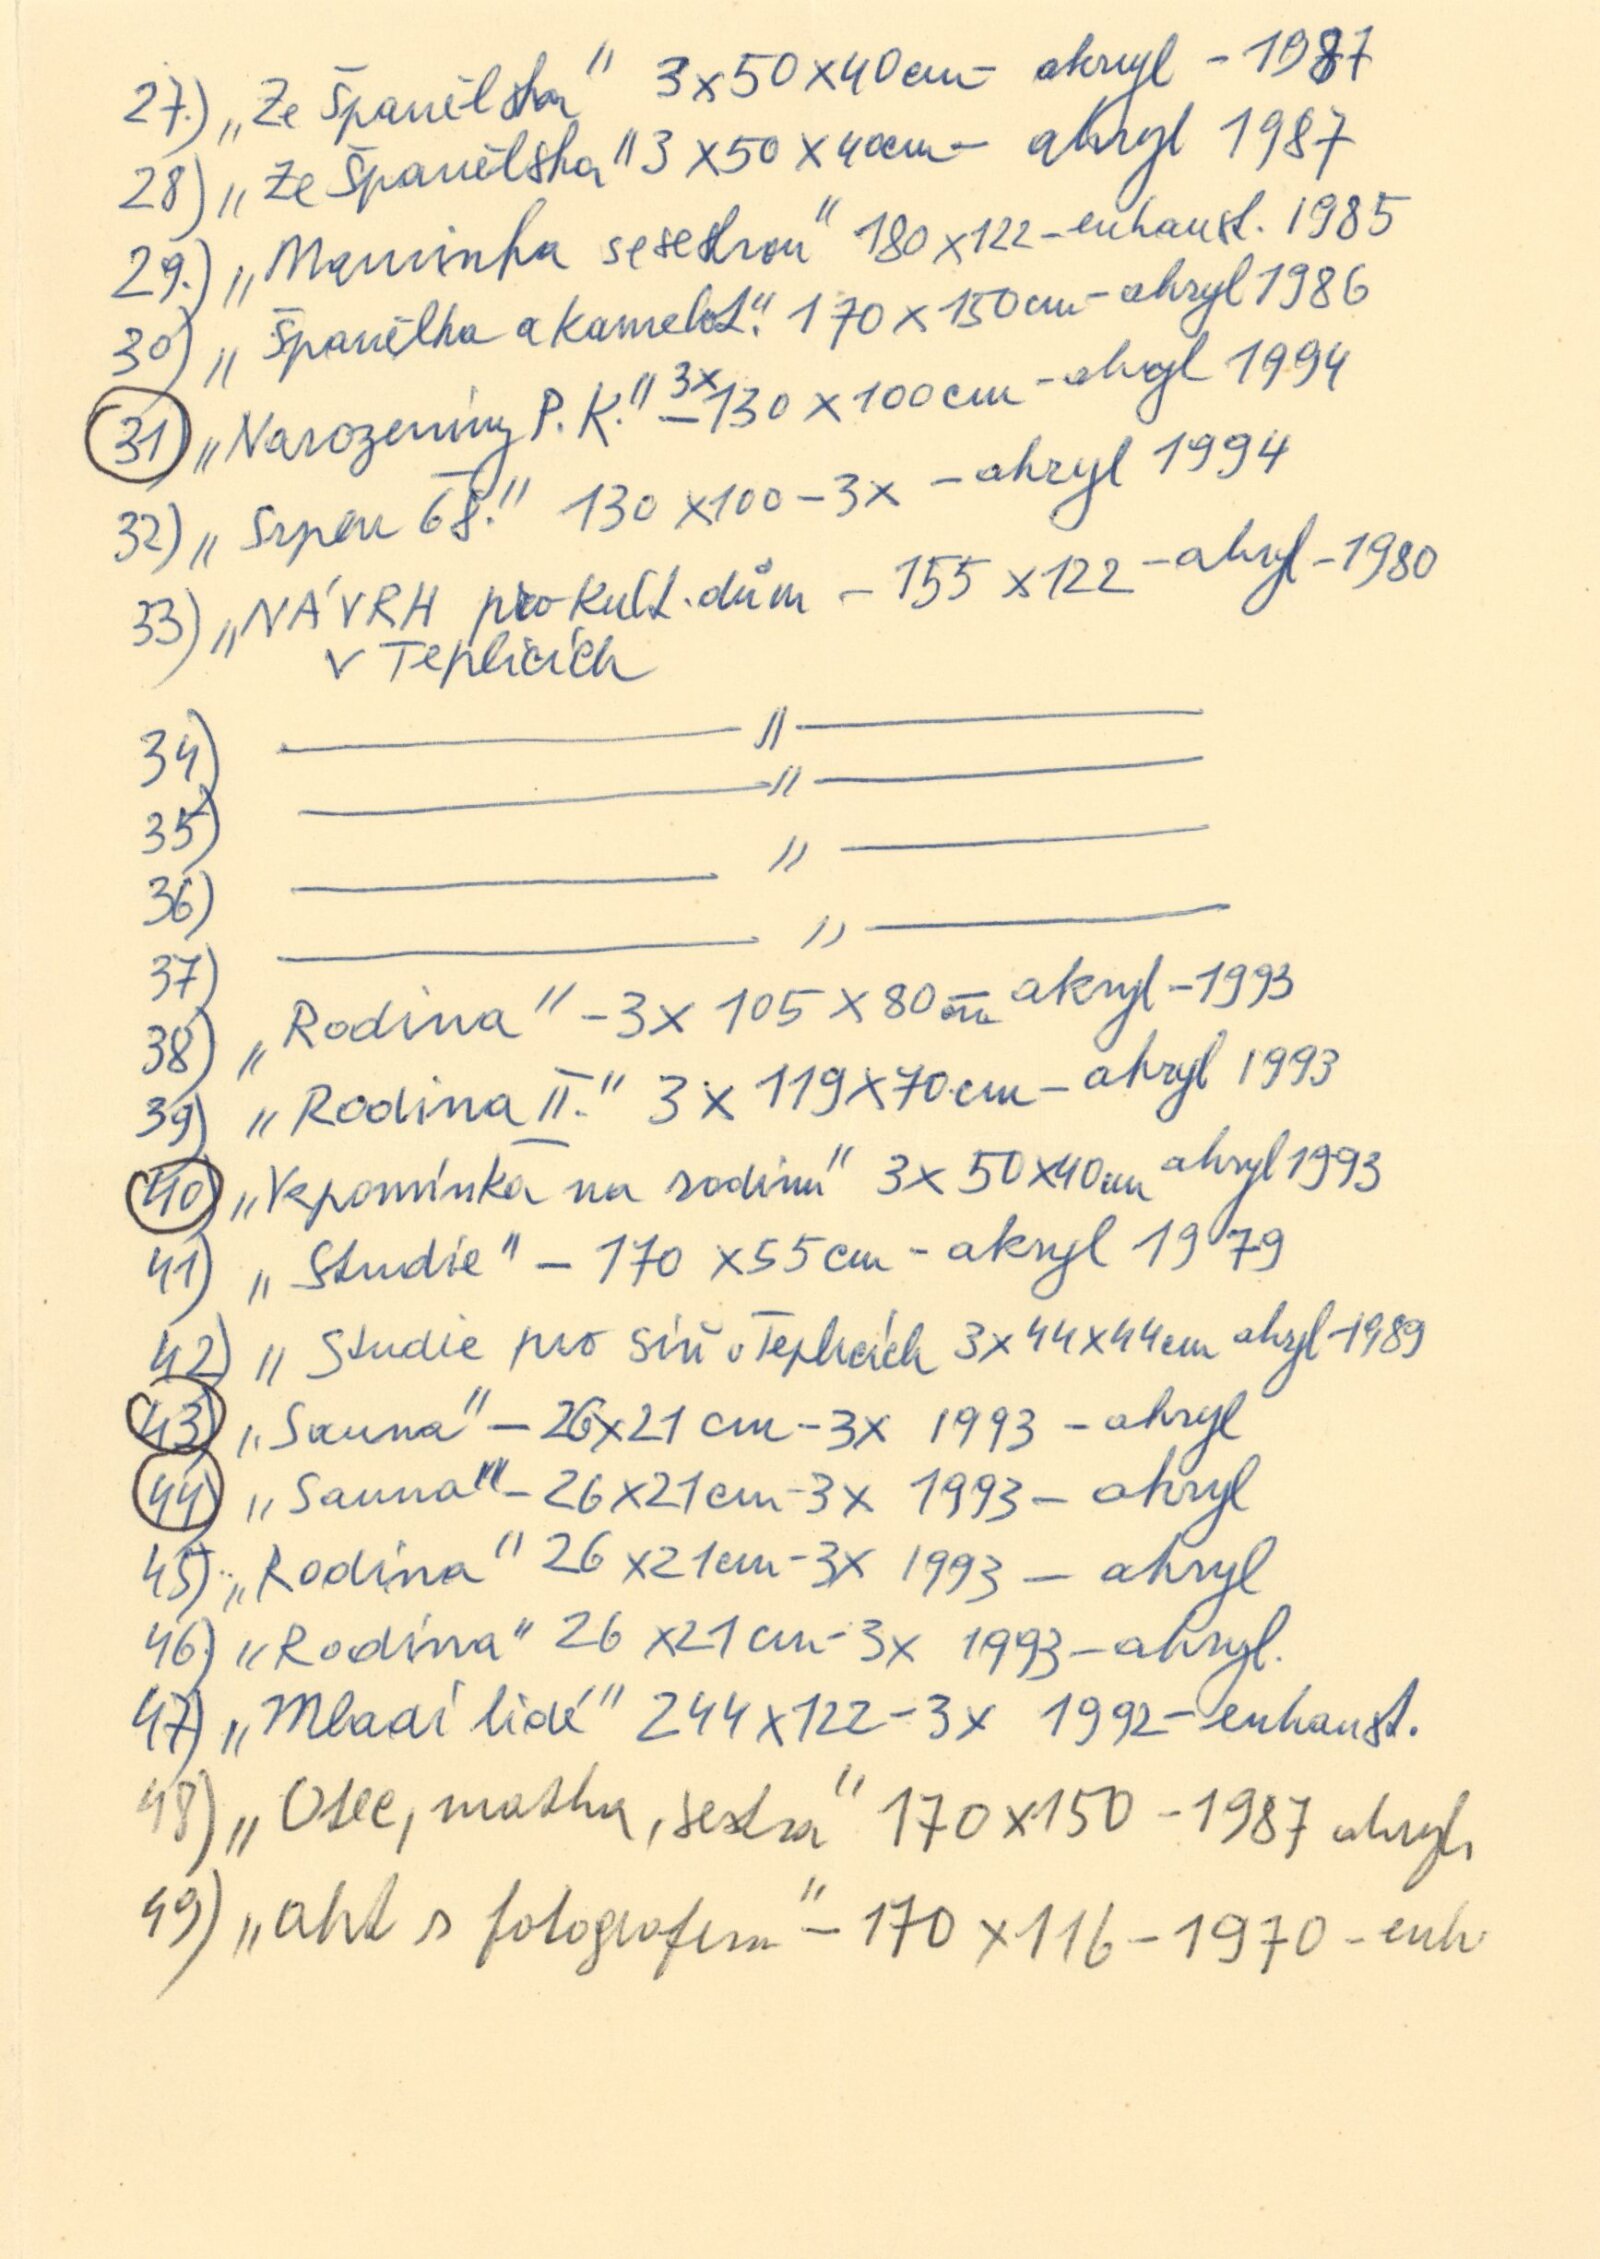 27.) „Ze Španělska" 3x50x40cm - akryl - 1987
28) „Ze Španělska" 3x50x40cm - akryl 1987
29.) „Maminka se sestrou" 180x122 - enkaust. 1985
30) „Španělka a kamelot". 170x150cm - akryl 1986
31) „Narozeniny P.K." 3x - 130x100cm - akryl 1994
32) „Srpen 68." 130x100 - 3x - akryl 1994
33) „NÁVRH pro kult. dům - 155x122 - akryl - 1980
v Teplicích
34) —— „ ——
35) —— „ ——
36) —— „ ——
37) —— „ ——
38) „Rodina" - 3x 105x80cm akryl - 1993
39) „Rodina II." 3x 119x70cm - akryl 1993
40) „Vzpomínka na rodinu" 3x 50x40cm akryl 1993
41) „Studie" - 170x55cm - akryl 1979
42) „Studie pro síň v Teplicích 3x44x44cm akryl - 1989
43) „Sauna" - 26x21cm - 3x 1993 - akryl
44) „Sauna" - 26x21cm - 3x 1993 - akryl
45) „Rodina" 26x21cm - 3x 1993 - akryl
46.) „Rodina" 26x21cm - 3x 1993 - akryl.
47) „Mladí lidé" 244x122 - 3x 1992 - enkaust.
48) „Otec, matka, sestra" 170x150 - 1987 akryl,
49) „akt s fotografem" - 170x116 - 1970 - enk.